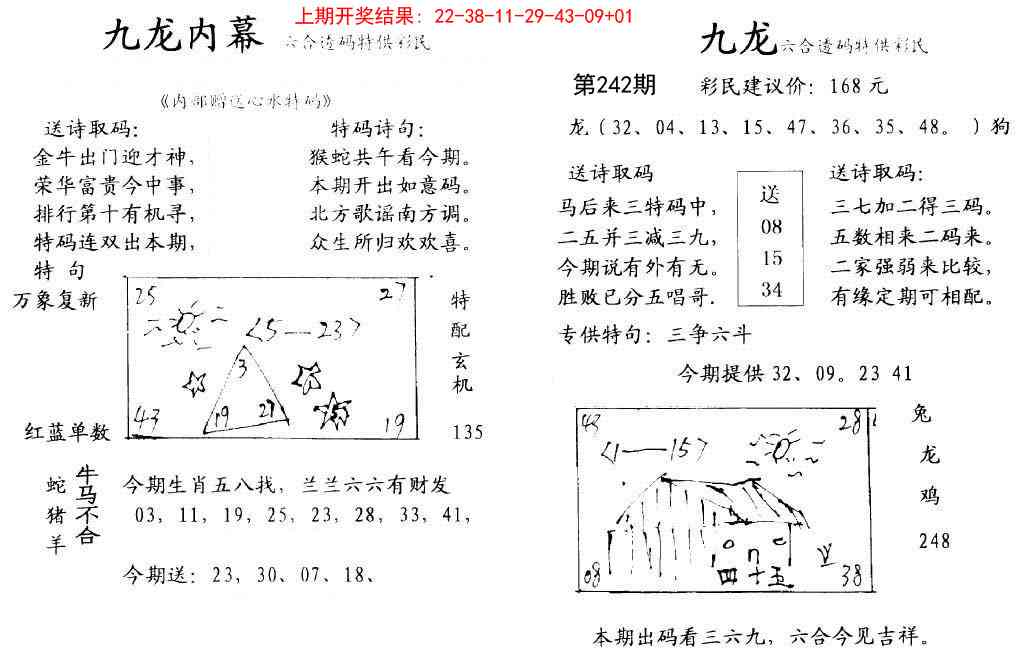 上期开奖结果：22-38-11-29-43-09+01
九龙内幕 六合透码特供彩民
《内部赠送心水特码》
送诗取码：
金牛出门迎才神，
荣华富贵今中事，
排行第十有机寻，
特码连双出本期，
特码诗句：
猴蛇共午看今期。
本期开出如意码。
北方歌谣南方调。
众生所归欢欢喜。
特 句
万象复新
红蓝单数
25
27
<5—23>
3
19 27
43
19
特
配
玄
机
135
蛇
猪
羊
牛
马
不
合
今期生肖五八找，兰兰六六有财发
03，11，19，25，23，28，33，41，
今期送：23，30、07、18、
九龙六合透码特供彩民
第242期 彩民建议价：168元
龙（32、04、13、15、47、36、35、48。）狗
送诗取码
马后来三特码中，
二五并三减三九，
今期说有外有无。
胜败已分五唱哥.
送
08
15
34
送诗取码：
三七加二得三码。
五数相来二码来。
二家强弱来比较，
有缘定期可相配。
专供特句：三争六斗
今期提供32、09。23 41
43
28
<1—15>
08
四十五
38
兔
龙
鸡
248
本期出码看三六九，六合今见吉祥。